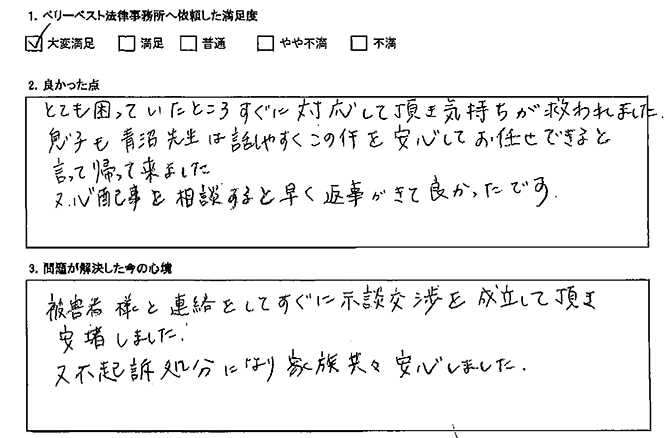 1. ベリーベスト法律事務所へ依頼した満足度
☑ 大変満足 □ 満足 □ 普通 □ やや不満 □ 不満
2. 良かった点
とても困っていたところすぐに対応して頂き気持ちが救われました.
息子も青沼先生は話しやすくこの件を安心してお任せできると
言って帰って来ました
又心配事を相談すると早く返事がきて良かったです.
3. 問題が解決した今の心境
被害者様と連絡をしてすぐに示談交渉を成立して頂き
安堵しました.
又不起訴処分になり家族共々安心しました.